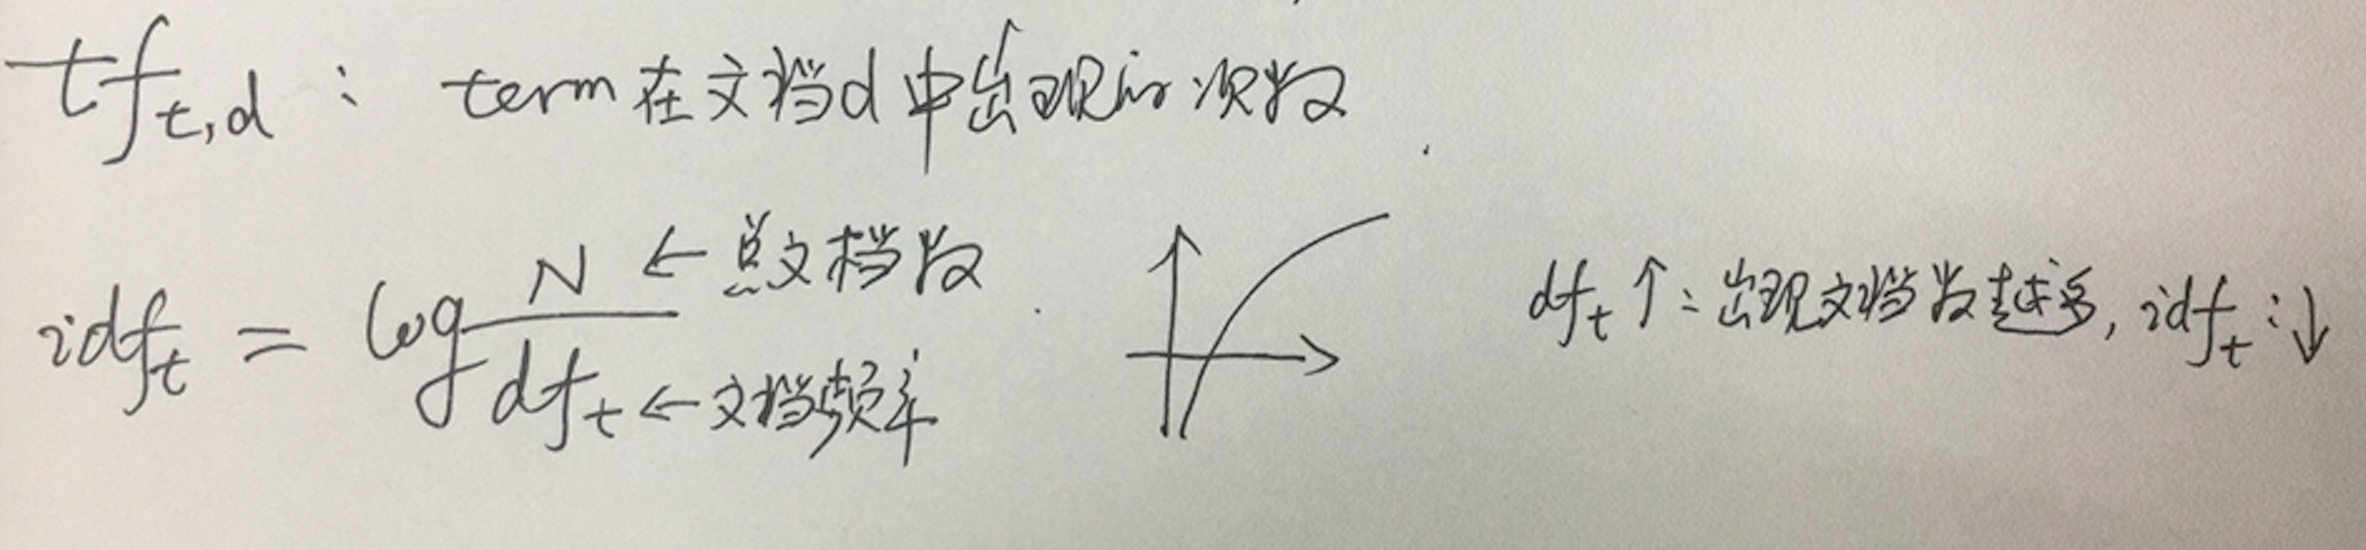 tf_{t,d} : term在文档d中出现的次数
idf_t = log N/df_t
N ← 总文档数
df_t ← 文档频率
df_t ↑: 出现文档数越多, idf_t : ↓